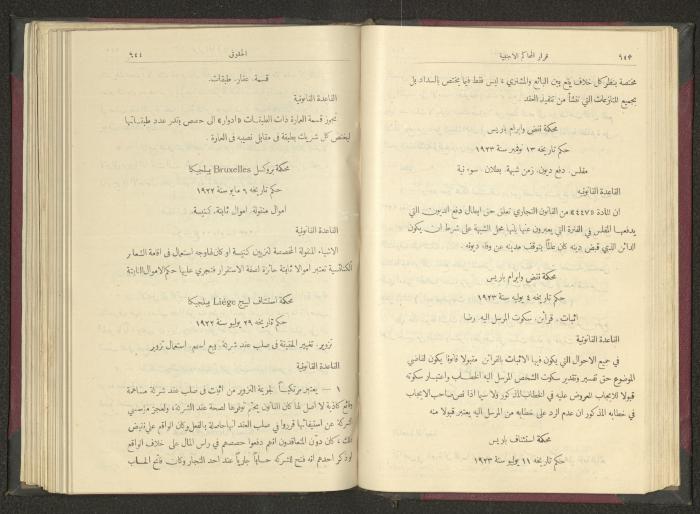 ٦٤٣ قرار المحاكم الاجنبية
مختصة بنظر كل خلاف يقع بين البائع والمشتري، ليس فقط فيما يختص بالسداد بل
بجميع المنازعات التي تنشأ من تنفيذ العقد
محكمة نقض وابرام باريس
حكم تاريخه ١٣ نوفمبر سنة ١٩٢٣
مفلس. دفع ديون. زمن شبهة. بطلان. سوء نية
القاعدة القانونية
ان المادة «٤٤٧» من القانون التجاري تعلق حق ابطال دفع الديون التي
يدفعها المفلس في الفترة التي يعبرون عنها بانها محل الشبهة على شرط ان يكون
الدائن الذي قبض دينه كان عالماً بتوقف مدينه عن وفاء ديونه.
محكمة نقض وابرام باريس
حكم تاريخه ٤ يوليه سنة ١٩٢٣
اثبات. قرائن. سكوت المرسل اليه. رضا
القاعدة القانونية
في جميع الاحوال التي يكون فيها الاثبات بالقرائن مقبولا قانونا يكون لقاضي
الموضوع حق تفسير وتقدير سكوت الشخص المرسل اليه الخطاب واعتبار سكوته
قبولا للايجاب المعروض عليه في الخطاب المذكور ولا سيما اذا نص صاحب الايجاب
في خطابه المذكور ان عدم الرد على خطابه من المرسل اليه يعتبر قبولا منه
محكمة استئناف باريس
حكم تاريخه ١١ يوليو سنة ١٩٢٣
الحقوق ٦٤٤
قسمة. عقار. طبقات.
القاعدة القانونية
تجوز قسمة العمارة ذات الطبقات «ادوار» الى حصص وتدر عدد طبقاتها
ليختص كل شريك بطبقة في مقابل نصيبه في العمارة.
محكمة بروكسل Bruxelles ببلجيكا
حكم تاريخه ٦ مايو سنة ١٩٢٢
اموال منقولة. اموال ثابتة. كنيسة.
القاعدة القانونية
الاشياء المنقولة المخصصة لتزيين كنيسة او كان لوجوه استعمال في اقامة الشعائر
الكنائسية تعتبر اموالا ثابتة حائزة لصفة الاستقرار فتجري عليها حكم الاموال الثابتة
محكمة استئناف لييج Liége ببلجيكا
حكم تاريخه ٢٩ يوليو سنة ١٩٢٢
تزوير. تغيير الحقيقة في صلب عند شركة. بيع اسهم. استعمال تزوير
القاعدة القانونية
١ — يعتبر مرتكباً لجريمة التزوير من اثبت في صلب عند شركة مساهمة
وقائع كاذبة لا اصل لها كان القانون يحتم توفرها لصحة عند الشركة، ولعجز مؤسسي
الشركة عن استيفائها قرروا في صلب العند انها حاصلة بالفعل وكان الواقع على نقيض
ذلك، كأن دون المتعاقدون انهم دفعوا حصصهم في راس المال على خلاف الواقع
او ذكر احدهم انه فتح للشركة حساباً جارياً عند احد التجار وكان فاتح الحساب